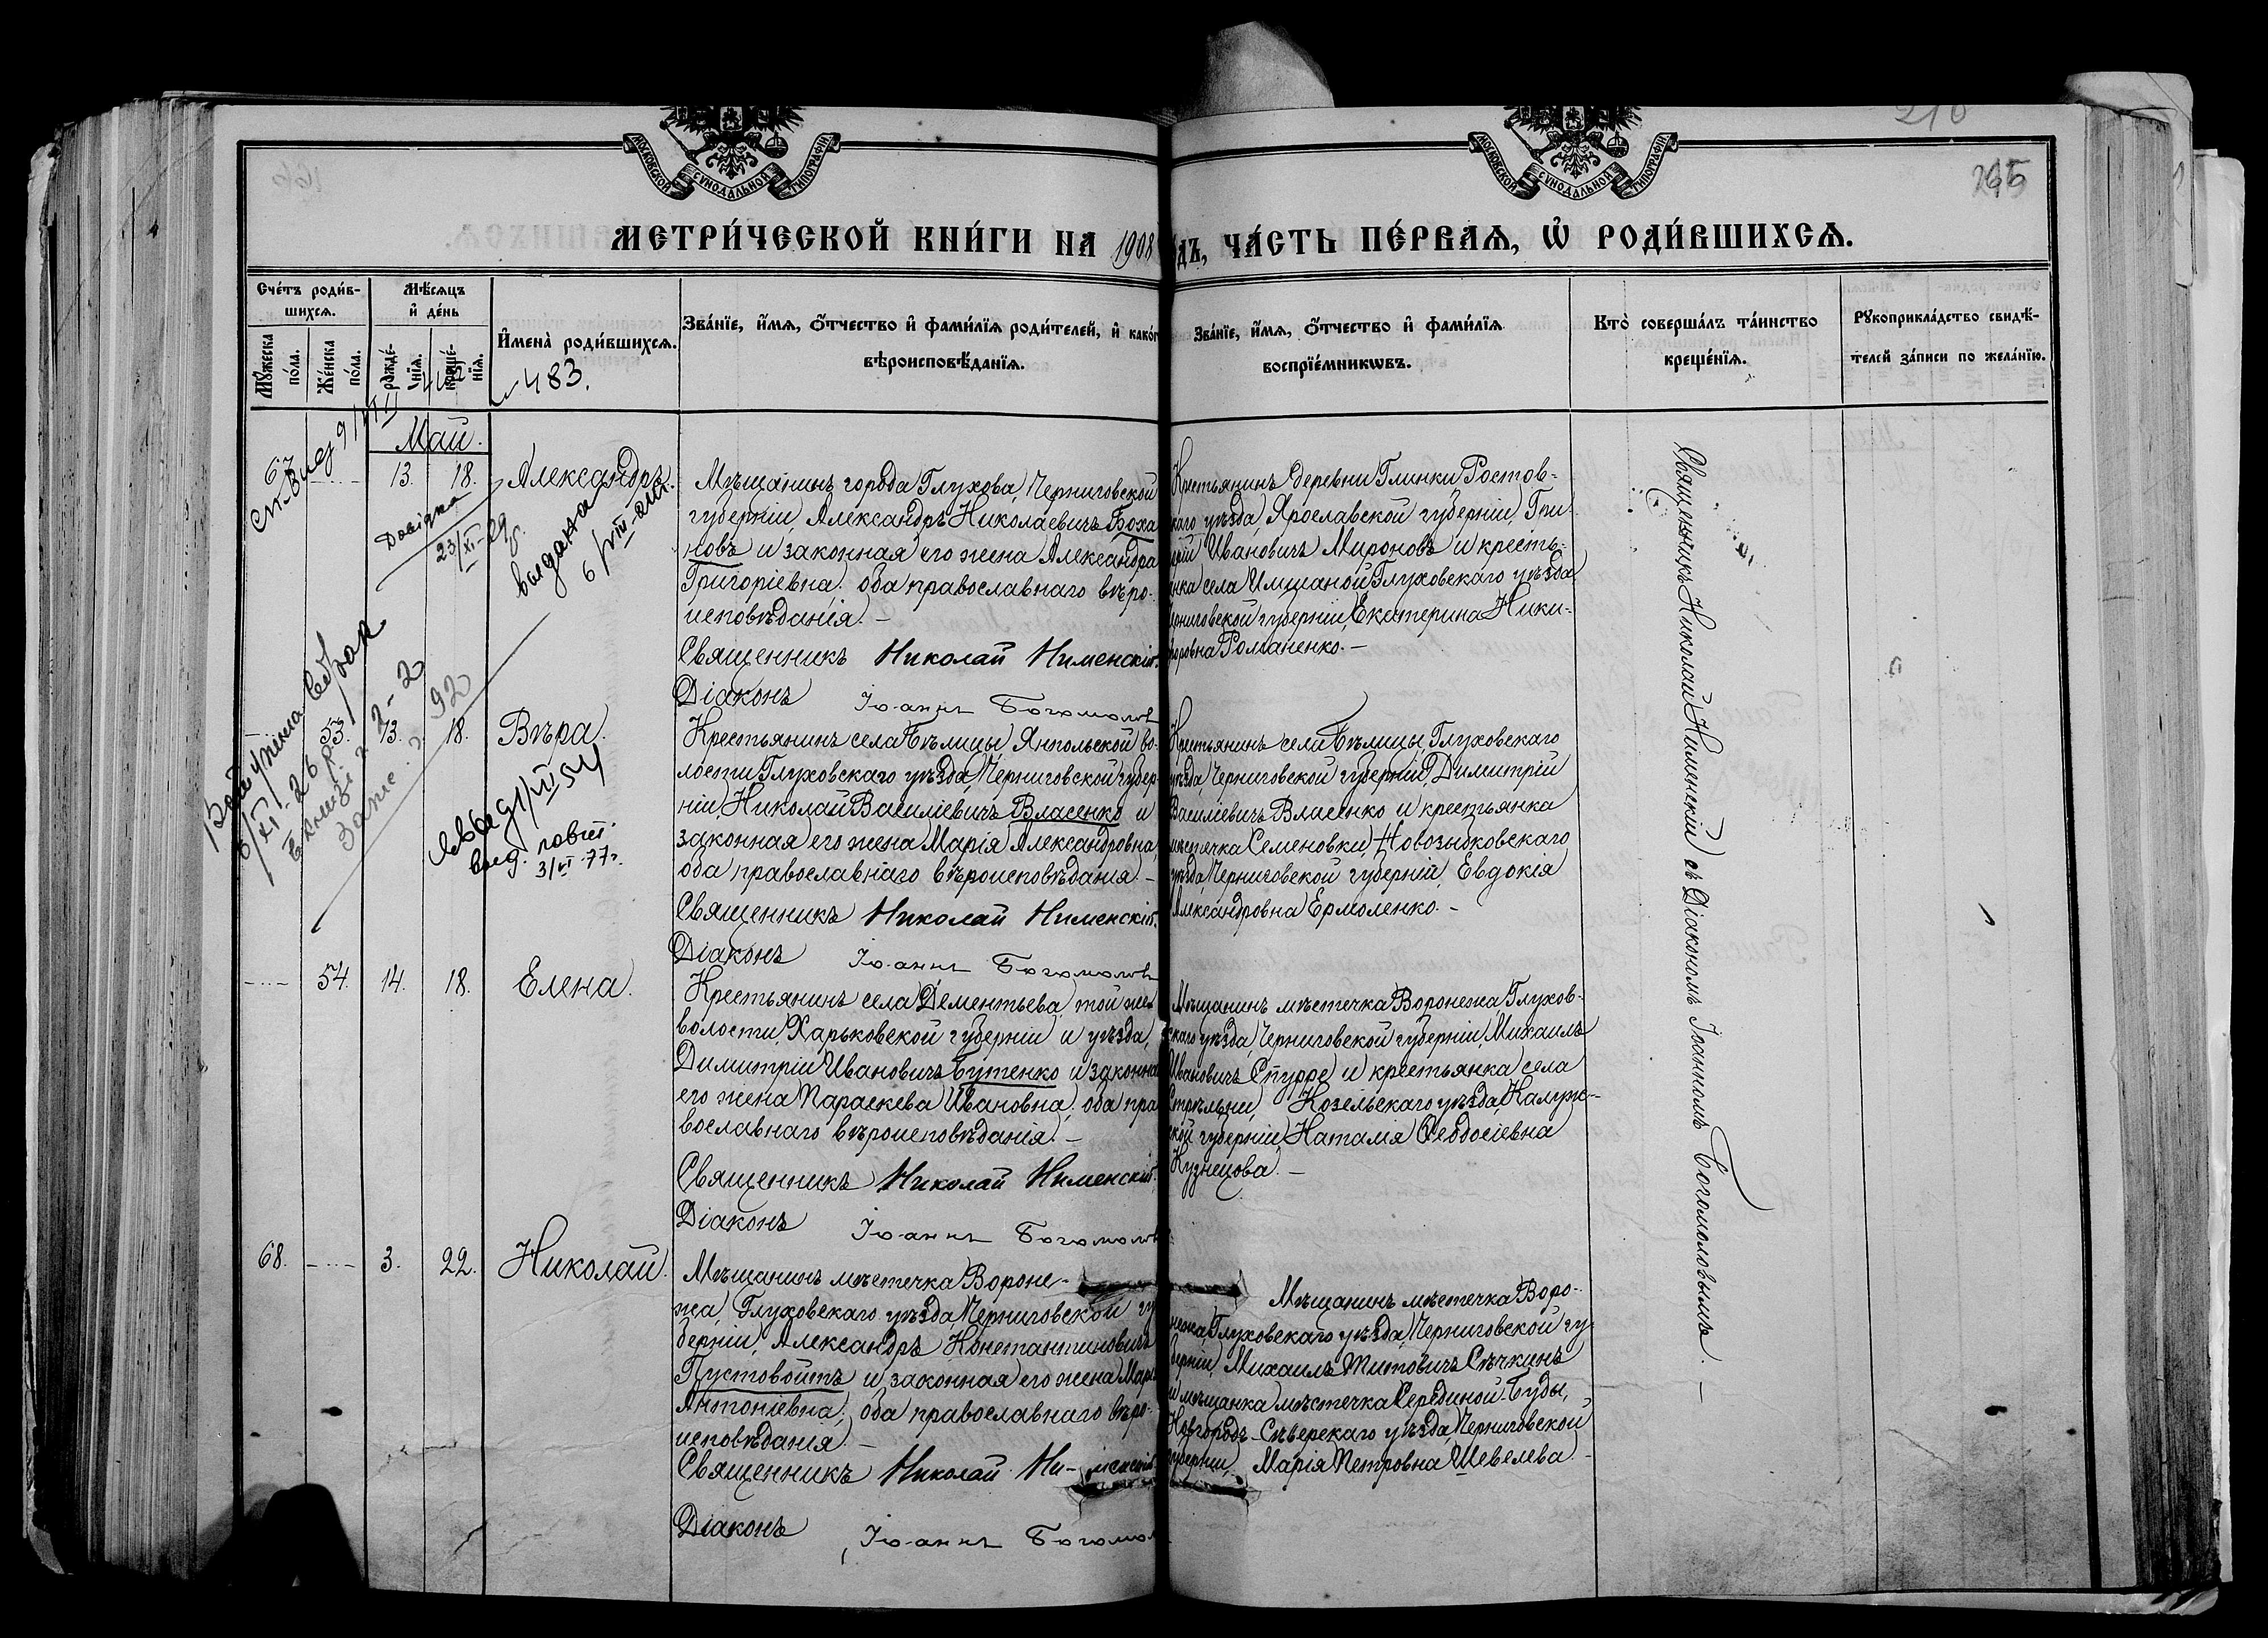 МОСКОВСКОЙ СѴНОДАЛЬНОЙ ТИПОГРАФІИ
МОСКОВСКОЙ СѴНОДАЛЬНОЙ ТИПОГРАФІИ
210
МЕТРИ́ЧЕСКОЙ КНИ́ГИ НА 1908
дъ, ЧА́СТЬ ПЕ́РВАѦ, Ѡ҆ РОДИ́ВШИХСѦ.
Сче́тъ роди́в-
шихсѧ.
Му́жеска по́ла.
Же́нска по́ла.
Мѣ́сѧцъ
и҆ де́нь
рожде́-
нїѧ.
креще́-
нїѧ.
И҆мена̀ роди́вшихсѧ.
483.
Зва́нїе, и҆́мѧ, ѻ҆́тчество и҆ фами́лїѧ роди́телей, и҆ како́г
вѣроисповѣ́данїѧ.
Зва́нїе, и҆́мѧ, ѻ҆́тчество и҆ фами́лїѧ
воспрїе́мникѡвъ.
Кто̀ соверша́лъ та́инство
креще́нїѧ.
Рꙋкоприкла́дство свидѣ́-
телей за́писи по жела́нїю.
Май.
67 13. 18. Александръ.
Довідка
23/XI-29р.
выдана
6/VIII
Мѣщанинъ города Глухова, Черниговской
губерніи, Александръ Николаевичъ Боха
новъ и законная его жена Александра
Григоріевна, оба православнаго вѣро-
исповѣданія. –
Священникъ Николай Нименскій.
Діаконъ Іоаннъ Богомолов
Крестьянинъ деревни Глинки Ростов-
каго уѣзда, Ярославской губерніи, Гри
орій Ивановичъ Мироновъ и кресть-
янка села Имшаной Глуховскаго уѣзда
Черниговской губерніи, Екатерина Ники-
форовна Романенко. –
53. 13. 18. Вѣра.
2-2
92
6/XI-26р
Запис
выд. 3/XI-77г.
Крестьянинъ села Бѣлицы Янпольской во-
лости Глуховскаго уѣзда, Черниговской губер-
ніи, Николай Василіевичъ Власенко и
законная его жена Марія Александровна,
оба православнаго вѣроисповѣданія. –
Священникъ Николай Нименскій.
Діаконъ Іоаннъ Богомолов
Крестьянинъ села Бѣлицы, Глуховскаго
уѣзда, Черниговской губерніи, Димитрій
Василіевичъ Власенко и крестьянка
мѣстечка Семеновки, Новозыбковскаго
уѣзда, Черниговской губерніи, Евдокія
Александровна Ермоленко. –
54. 14. 18. Елена.
Крестьянинъ села Дементьева, той же
волости, Харьковской губерніи и уѣзда,
Димитрій Ивановичъ Бутенко и законна
его жена Параскева Ивановна, оба пра
вославнаго вѣроисповѣданія. –
Священникъ Николай Нименскій.
Діаконъ Іоаннъ Богомолов
Мѣщанинъ мѣстечка Воронежа, Глухов-
скаго уѣзда, Черниговской губерніи, Михаилъ
Ивановичъ Спурре и крестьянка села
Стрѣльни, Козельскаго уѣзда, Калуж-
ской губерніи, Наталія Ѳеодосіевна
Кузнецова. –
68. 3. 22. Николай.
Мѣщанинъ мѣстечка Вороне-
жа, Глуховскаго уѣзда, Черниговской гу
берніи, Александръ Константиновичъ
Пустовойтъ и законная его жена Марі
Антоніевна, оба православнаго вѣро-
исповѣданія. –
Священникъ Николай Ни-менскій
Діаконъ Іоаннъ Богомол
Мѣщанинъ мѣстечка Воро-
нежа, Глуховскаго уѣзда, Черниговской гу-
берніи, Михаилъ Титовичъ Сѣчкинъ
и мѣщанка мѣстечка Середино й-Буды,
Новгородъ-Сѣверскаго уѣзда, Черниговской
губерніи, Марія Петровна Шевелева. –
Священникъ Николай Нименскій съ Діакономъ Іоанномъ Богомоловымъ. –